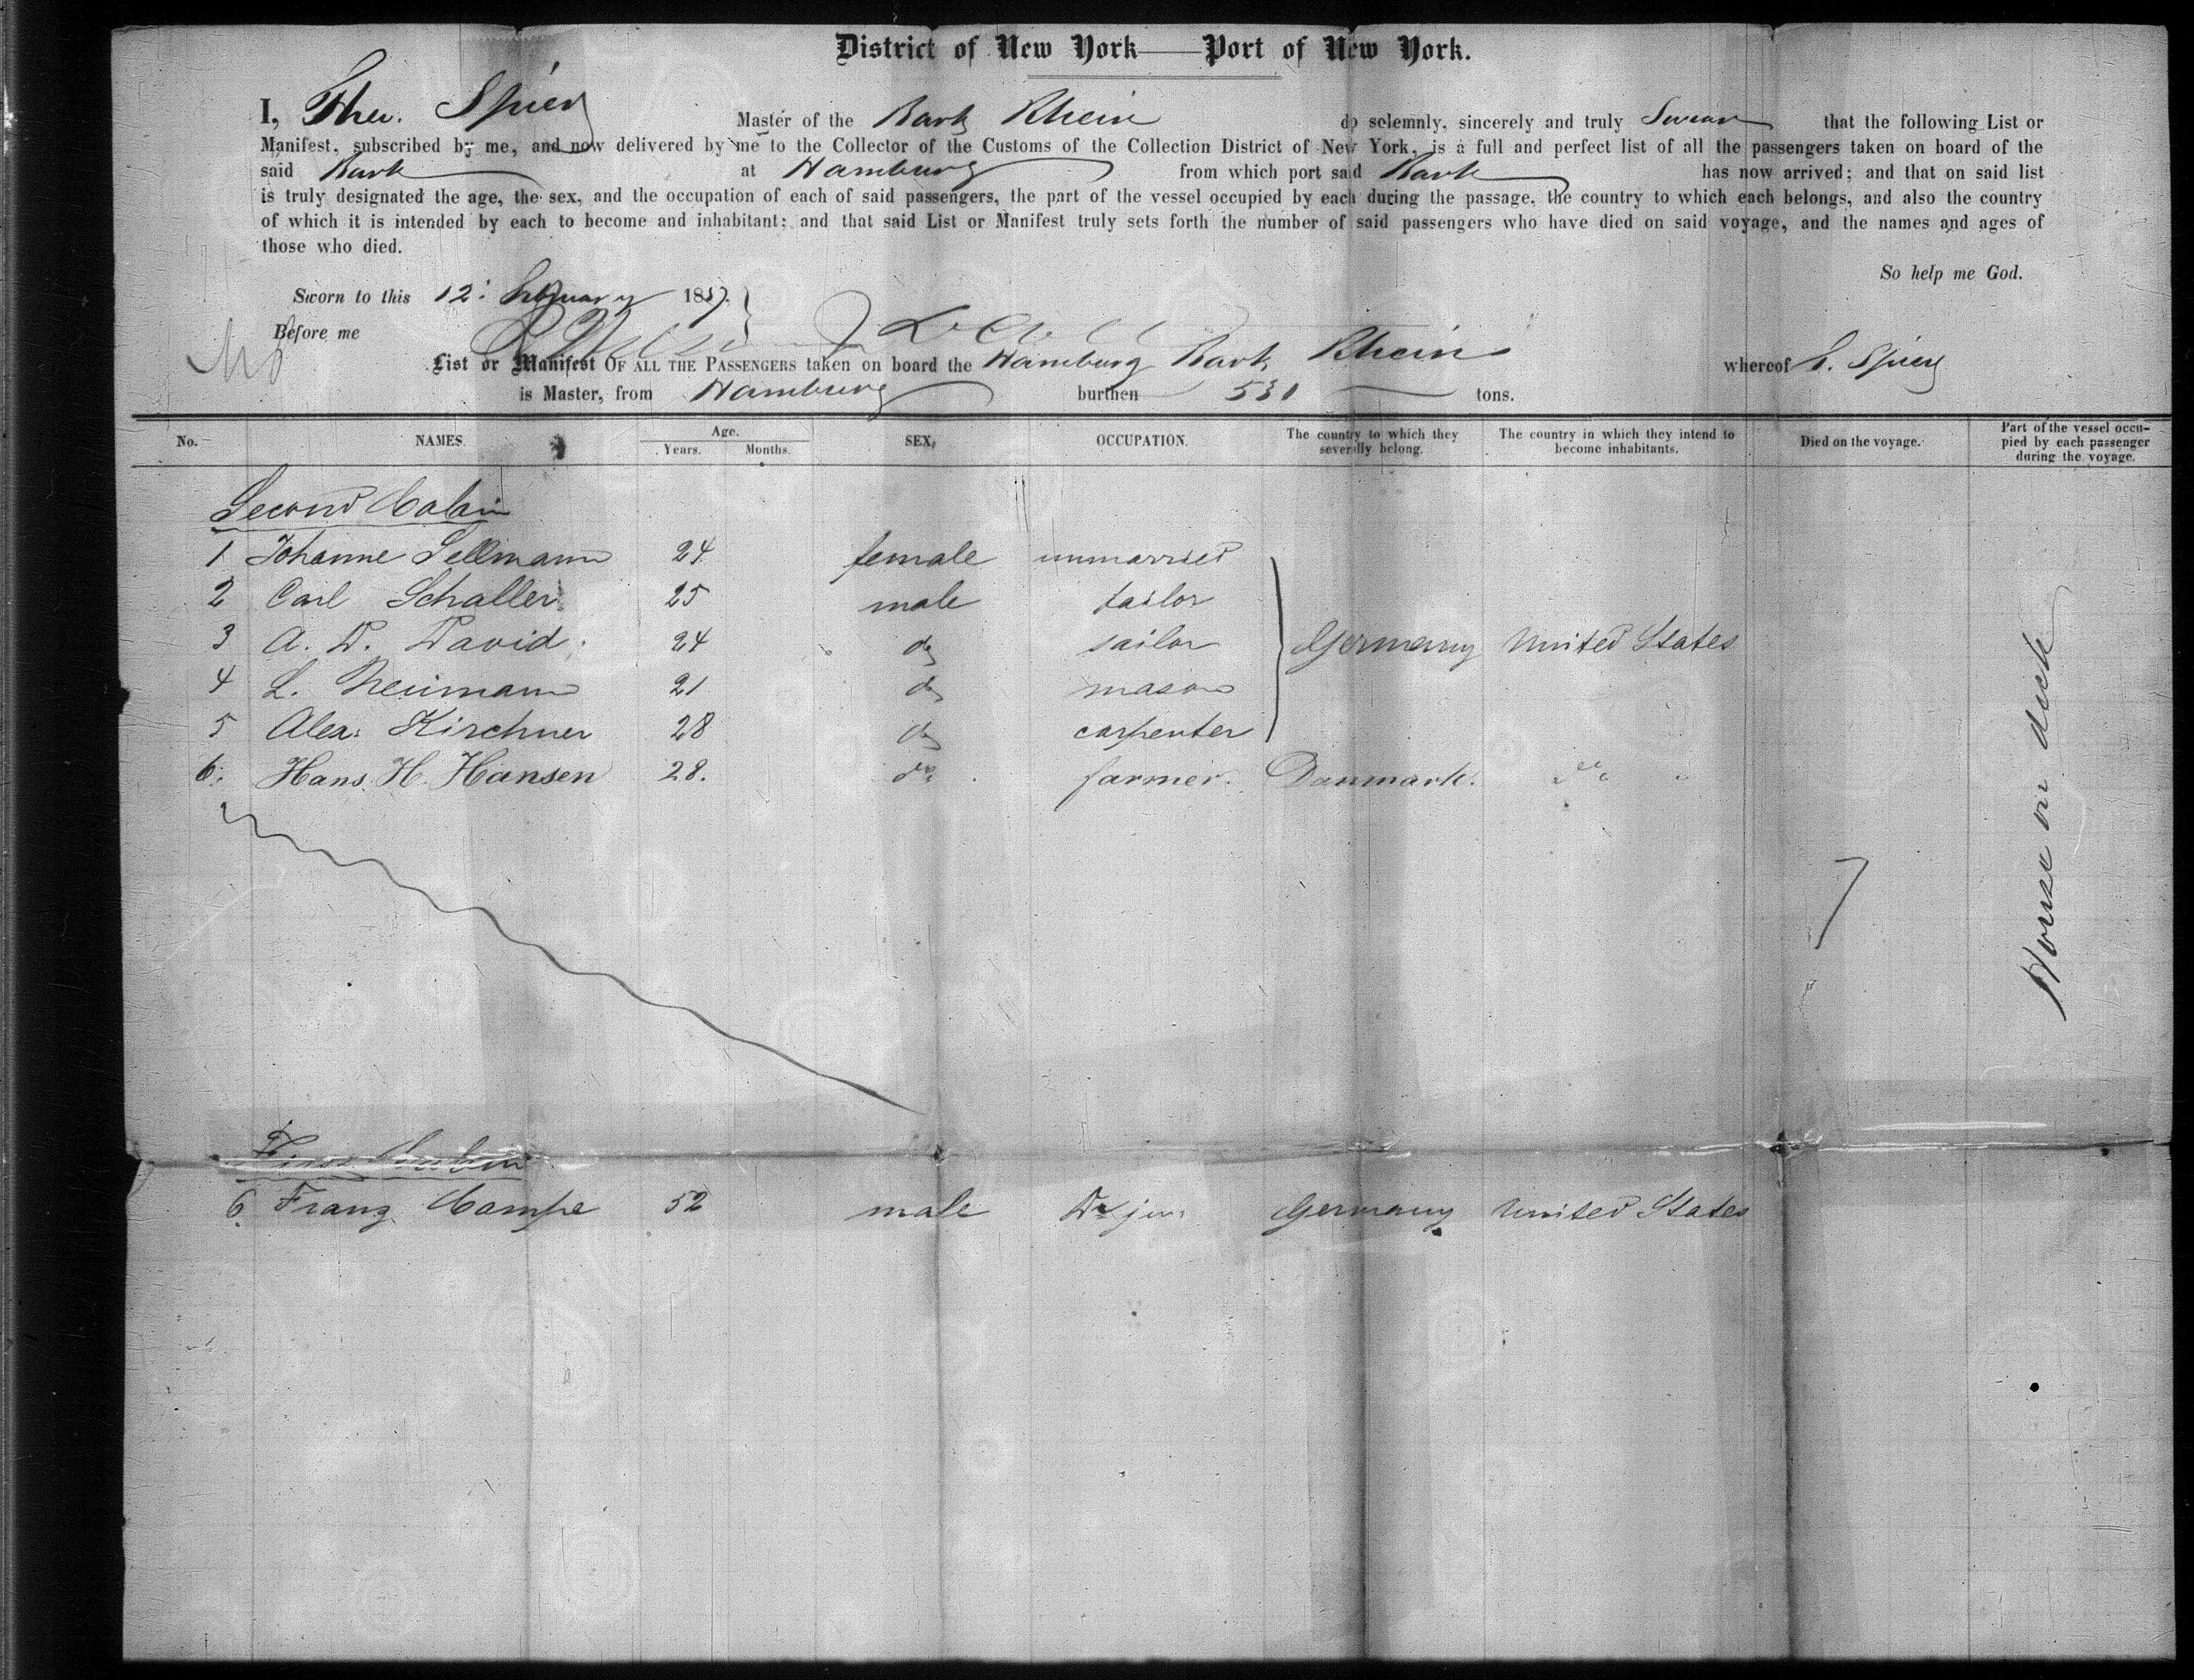 District of New York — Port of New York.
I, Theo. Spier Master of the Bark Rhein do solemnly, sincerely and truly Swear that the following List or
Manifest, subscribed by me, and now delivered by me to the Collector of the Customs of the Collection District of New York, is a full and perfect list of all the passengers taken on board of the
said Bark at Hamburg from which port said Bark has now arrived; and that on said list
is truly designated the age, the sex, and the occupation of each of said passengers, the part of the vessel occupied by each during the passage, the country to which each belongs, and also the country
of which it is intended by each to become and inhabitant; and that said List or Manifest truly sets forth the number of said passengers who have died on said voyage, and the names and ages of
those who died.
So help me God.
Sworn to this 12. February 1857.
Before me
List or Manifest OF ALL THE PASSENGERS taken on board the Hamburg Bark Rhein whereof Spier
is Master, from Hamburg burthen 530 tons.
No. NAMES. Age. Years. Months. SEX. OCCUPATION. The country to which they severally belong. The country in which they intend to become inhabitants. Died on the voyage. Part of the vessel occupied by each passenger during the voyage.
Second Cabin
1 Johanne Sellmann 24 female unmarried
2 Carl Schaller 25 male tailor
3 A. D. David. 24 do sailor Germany United States
4 L. Neumann 21 do mason
5 Alex: Kirchner 28 do carpenter
6. Hans H. Hansen 28. do. farmer. Danmark. do
House on deck
First Cabin
6. Franz Campe 52 male Germany United States